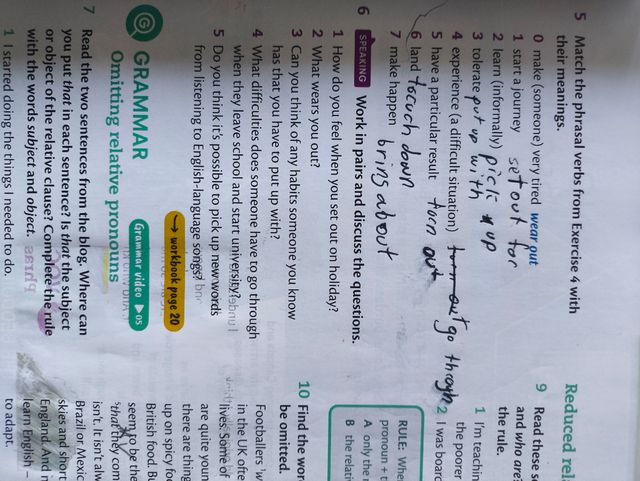 5 Match the phrasal verbs from Exercise 4 with
their meanings.
0 make (someone) very tired wear out
1 start a journey set out for
2 learn (informally) pick up
3 tolerate put up with
4 experience (a difficult situation) turn out go through
5 have a particular result turn out
6 land touch down
7 make happen bring about
6 SPEAKING Work in pairs and discuss the questions.
1 How do you feel when you set out on holiday?
2 What wears you out?
3 Can you think of any habits someone you know
has that you have to put up with?
4 What difficulties does someone have to go through
when they leave school and start university?
5 Do you think it's possible to pick up new words
from listening to English-language songs?
→ workbook page 20
G GRAMMAR
Omitting relative pronouns
Grammar video ▶05
7 Read the two sentences from the blog. Where can
you put that in each sentence? Is that the subject
or object of the relative clause? Complete the rule
with the words subject and object.
1 I started doing the things I needed to do.
Reduced rel
9 Read these se
and who are?
the rule.
1 I'm teachin
the poorer
2 I was board
RULE: Whe
pronoun + t
A only the
B the relati
10 Find the wor
be omitted.
Footballers 'w
in the UK ofte
lives. Some of
are quite youn
there are thing
up on spicy foo
British food. Bu
seem to be the
'that they com
isn't. It isn't alw
Brazil or Mexic
skies and short
England. And n
learn English –
to adapt.